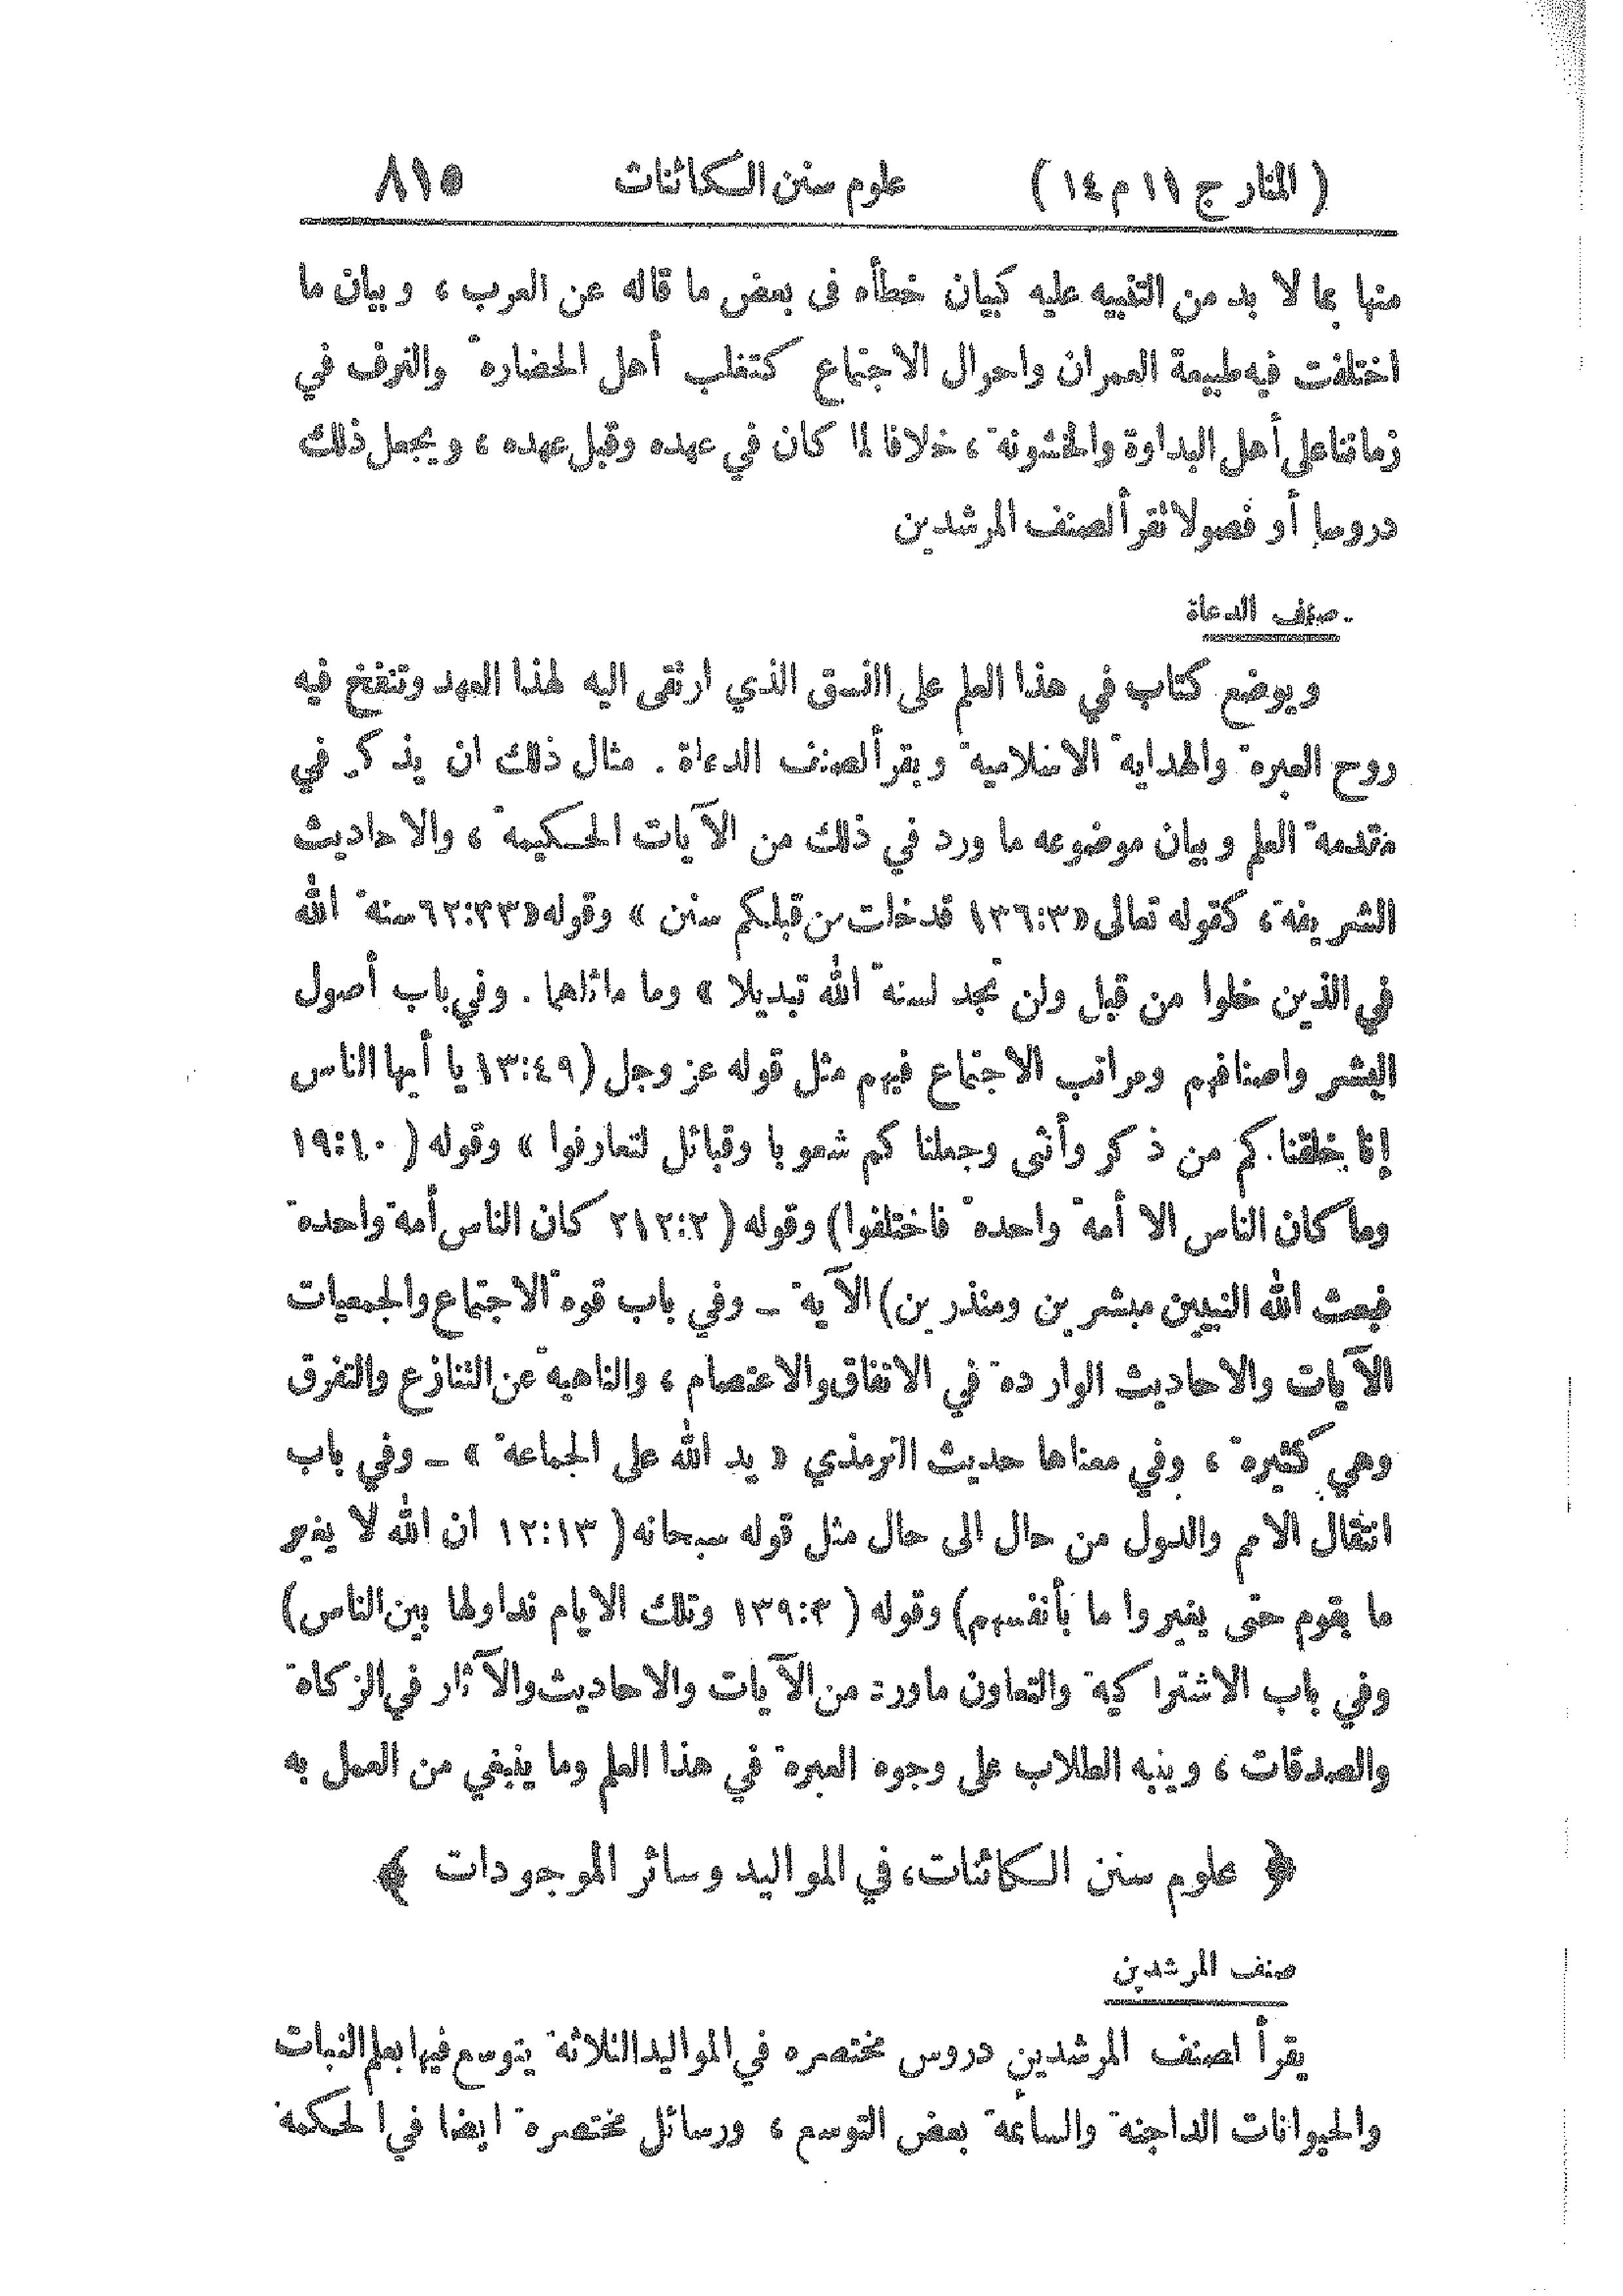 ( المنار ج ١١ م ١٤ ) علوم سنن الكائنات ٨١٥
منها بما لا بد من التنبيه عليه كبيان خطأه فى بعض ما قاله عن العرب ، وبيان ما
اختلفت فيه طبيعة العمران واحوال الاجتماع كتغلب أهل الحضارة والترف في
زماننا على أهل البداوة والخشونة ، خلافا لما كان في عهده وقبل عهده ، ويجعل ذلك
دروسا أو فصولا تقرأ لصنف المرشدين
صنف الدعاة
ويوضع كتاب في هذا العلم على النسق الذي ارتقى اليه لهذا العهد وتنفخ فيه
روح العبرة والهداية الاسلامية ويقرأ لصنف الدعاة . مثال ذلك ان يذكر في
مقدمة العلم وبيان موضوعه ما ورد في ذلك من الآيات الحكيمة ، والاحاديث
الشريفة ، كقوله تعالى « ١٣٦:٣ قد خلت من قبلكم سنن » وقوله « ٦٢:٣٣ سنة الله
في الذين خلوا من قبل ولن تجد لسنة الله تبديلا » وما ماثلهما . وفي باب أصول
البشر واصنافهم ومراتب الاجتماع فيهم مثل قوله عز وجل ( ١٣:٤٩ يا أيها الناس
إنا خلقناكم من ذكر وأنثى وجعلناكم شعوبا وقبائل لتعارفوا » وقوله ( ١٩:١٠
وما كان الناس الا أمة واحدة فاختلفوا ) وقوله ( ٢١٢:٢ كان الناس أمة واحدة
فبعث الله النبيين مبشرين ومنذرين ) الآية – وفي باب قوة الاجتماع والجمعيات
الآيات والاحاديث الواردة في الاتفاق والاعتصام ، والناهية عن التنازع والتفرق
وهي كثيرة ، وفي معناها حديث الترمذي « يد الله على الجماعة » – وفي باب
انتقال الامم والدول من حال الى حال مثل قوله سبحانه ( ١٢:١٣ ان الله لا يغير
ما بقوم حتى يغيروا ما بأنفسهم ) وقوله ( ١٣٩:٣ وتلك الايام نداولها بين الناس )
وفي باب الاشتراكية والتعاون ماورد من الآيات والاحاديث والآثار في الزكاة
والصدقات ، وينبه الطلاب على وجوه العبرة في هذا العلم وما ينبغي من العمل به
﴿ علوم سنن الكائنات ، في المواليد وسائر الموجودات ﴾
صنف المرشدين
يقرأ لصنف المرشدين دروس مختصرة في المواليد الثلاثة يتوسع فيها بعلم النبات
والحيوانات الداجنة والسائمة بعض التوسع ، ورسائل مختصرة ايضا في الحكمة